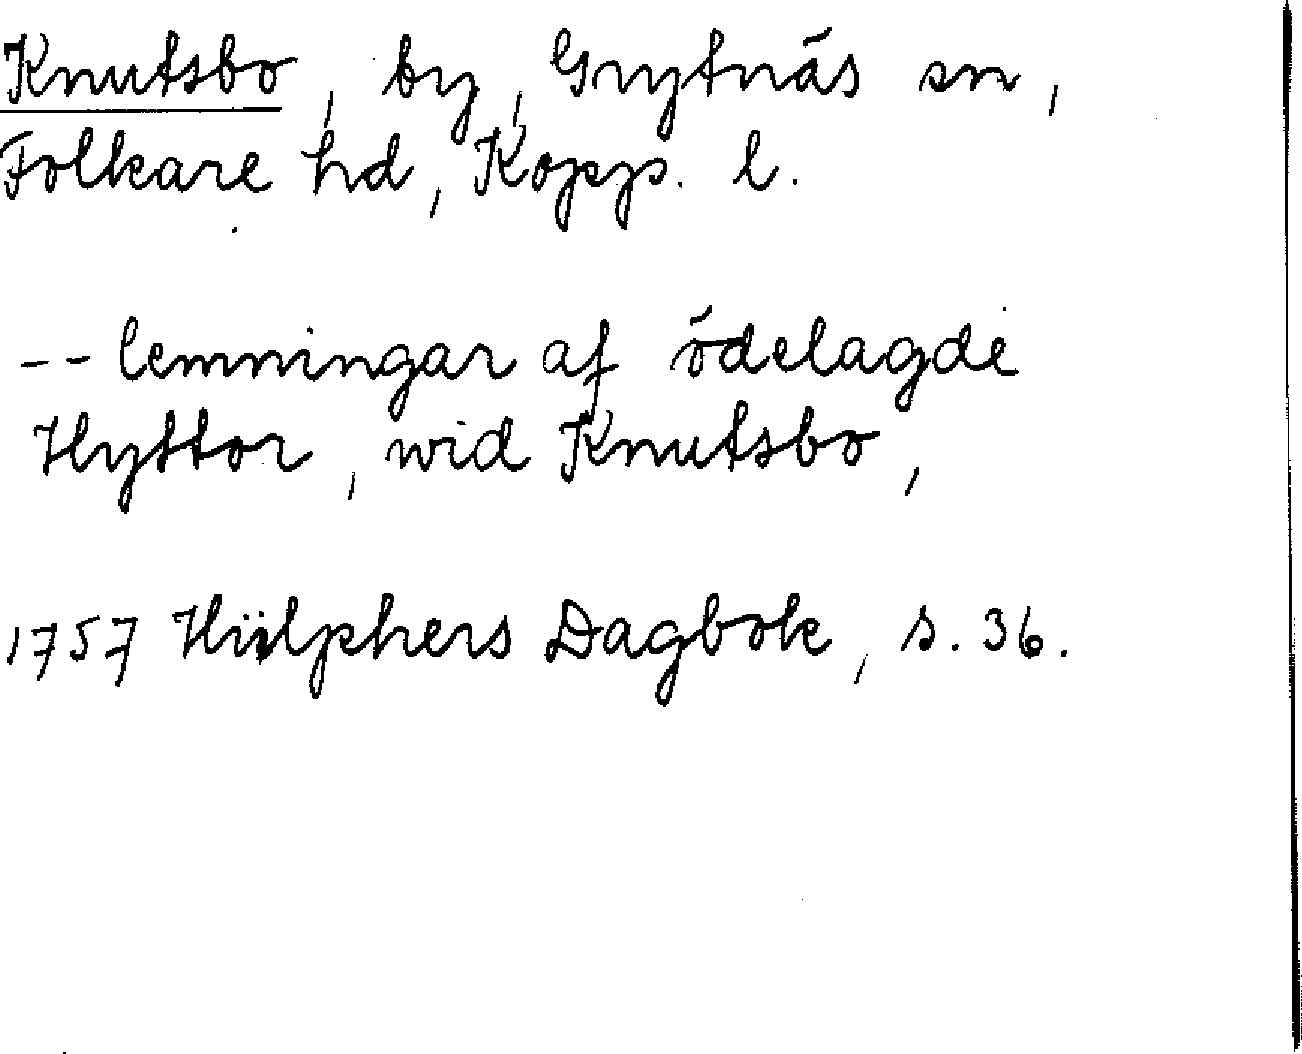 Knutsbo, by, Grytnäs sn,
Folkare hd, Kopp. l.
-- lemningar af ödelagde
Hyttor, wid Knutsbo,
1757 Hülphers Dagbok, s. 36.